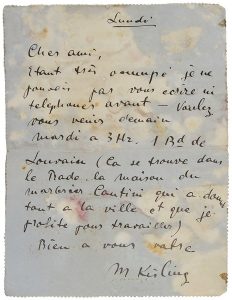 Lundi
Cher ami,
Etant très occupé je ne
pouvais pas vous ecrire ni
telephoner avant – Voulez
vous venir demain
mardi a 3 Hr. 1 Bd de
Louvain (Ca se trouve dans
le Prado. la maison du
marbrier Cantini qui a donné
tout a la ville et que je
profite pour travailler)
Bien a vous votre
M Kisling